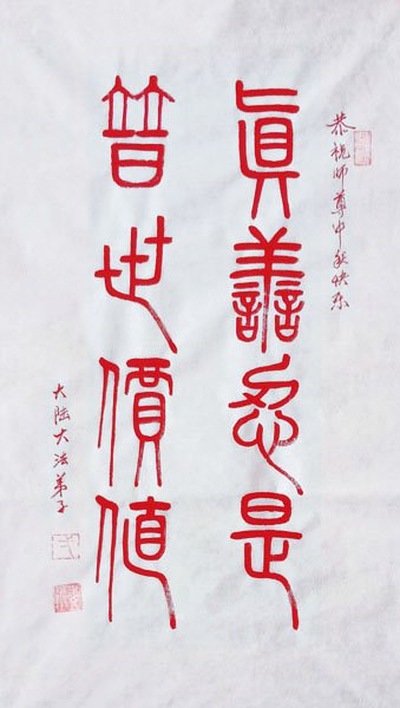 恭祝师尊中秋快乐
真善忍是
普世價值
大陆大法弟子